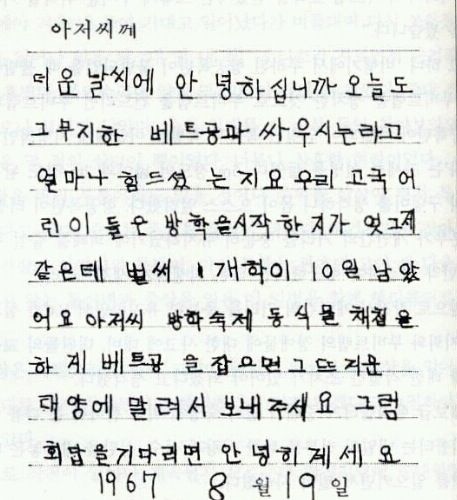 아저씨께
더운 날씨에 안녕하십니까 오늘도
무지한 베트공과 싸우시느라고
얼마나 힘드셨는지요 우리 고국 어
린이들은 방학을시작 한지가 엊그제
같은데 벌써 개학이 10일 남았
어요 아저씨 방학숙제 동식물 채집을
하게 베트공을 잡으면 그 뜨거운
태양에 말려서 보내주세요 그럼
회답을기다리면 안녕히 계세요
1967 8월 9일